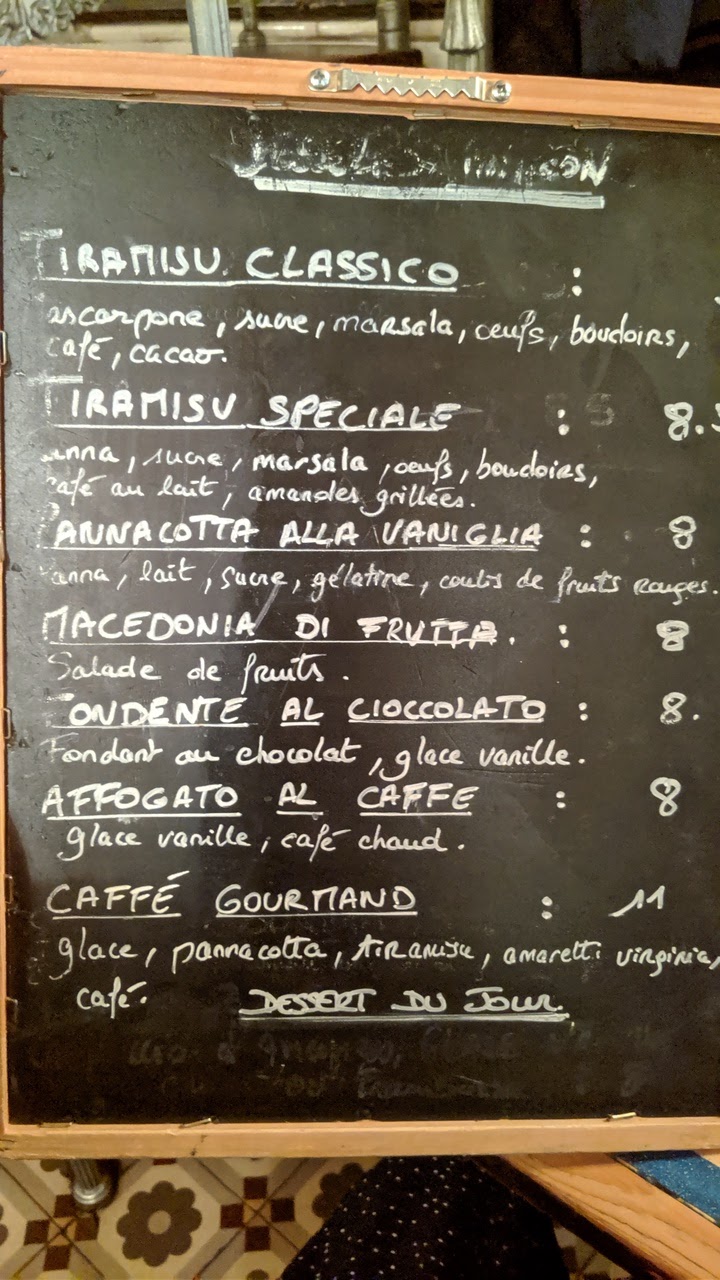 TIRAMISU CLASSICO :
ascarpone, sucre, marsala, œufs, boudoirs,
café, cacao.
TIRAMISU SPECIALE : 8.5
anna, sucre, marsala, œufs, boudoirs,
café au lait, amandes grillées.
PANNACOTTA ALLA VANIGLIA : 8
anna, lait, sucre, gélatine, coulis de fruits rouges.
MACEDONIA DI FRUTTA. : 8
Salade de fruits.
FONDENTE AL CIOCCOLATO : 8.
Fondant au chocolat, glace vanille.
AFFOGATO AL CAFFE : 8
glace vanille, café chaud.
CAFFÉ GOURMAND : 11
glace, pannacotta, tiramisu, amaretti virginia,
café.
DESSERT DU JOUR